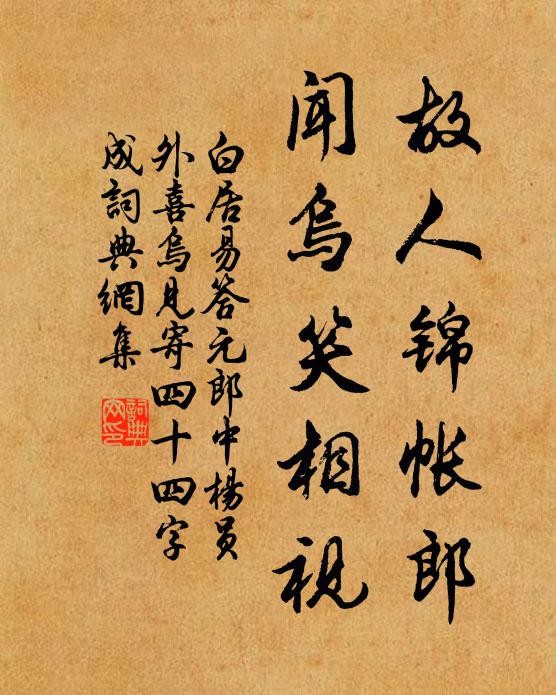 故人锦帐郎
闻乌笑相视
白居易答元郎中杨员
外喜乌见寄四十四字
成词典網集
詞典
网印